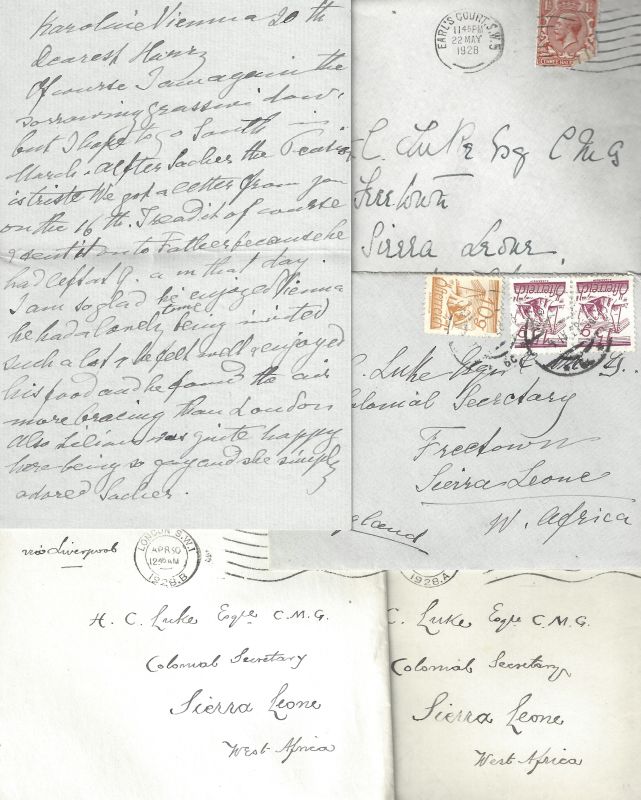 Karoline Vienna 20th
dearest Harry
Of course I am again the
sorrowing grass widow,
but I hope to go South in
March. After Sacher the
is triste We got a letter from you
on the 16th. I read it of course
& sent it on to Father because he
had left at 9. a m that day.
I am so glad he enjoyed Vienna
he had a lovely time being invited
such a lot & he felt well & enjoyed
his food and he found the air
more bracing than London
Also Lilian was quite happy
here being so gay and she simply
adored Sacher.
EARL'S COURT. S.W.5
11.45PM
22 MAY
1928
C. Luke Esq CMG
Freetown
Sierra Leone.
Österreich
Österreich
Österreich
C. Luke Esqre C. G.
Colonial Secretary
Freetown
Sierra Leone
W. Africa
England
via Liverpool
LONDON S.W.1
APR 30
12 AM
1928.B
H. C. Luke Esqre C.M.G.
Colonial Secretary
Sierra Leone
West Africa
1928.A
C. Luke Esqre C.M.G.
Colonial Secretary
Sierra Leone
West Africa